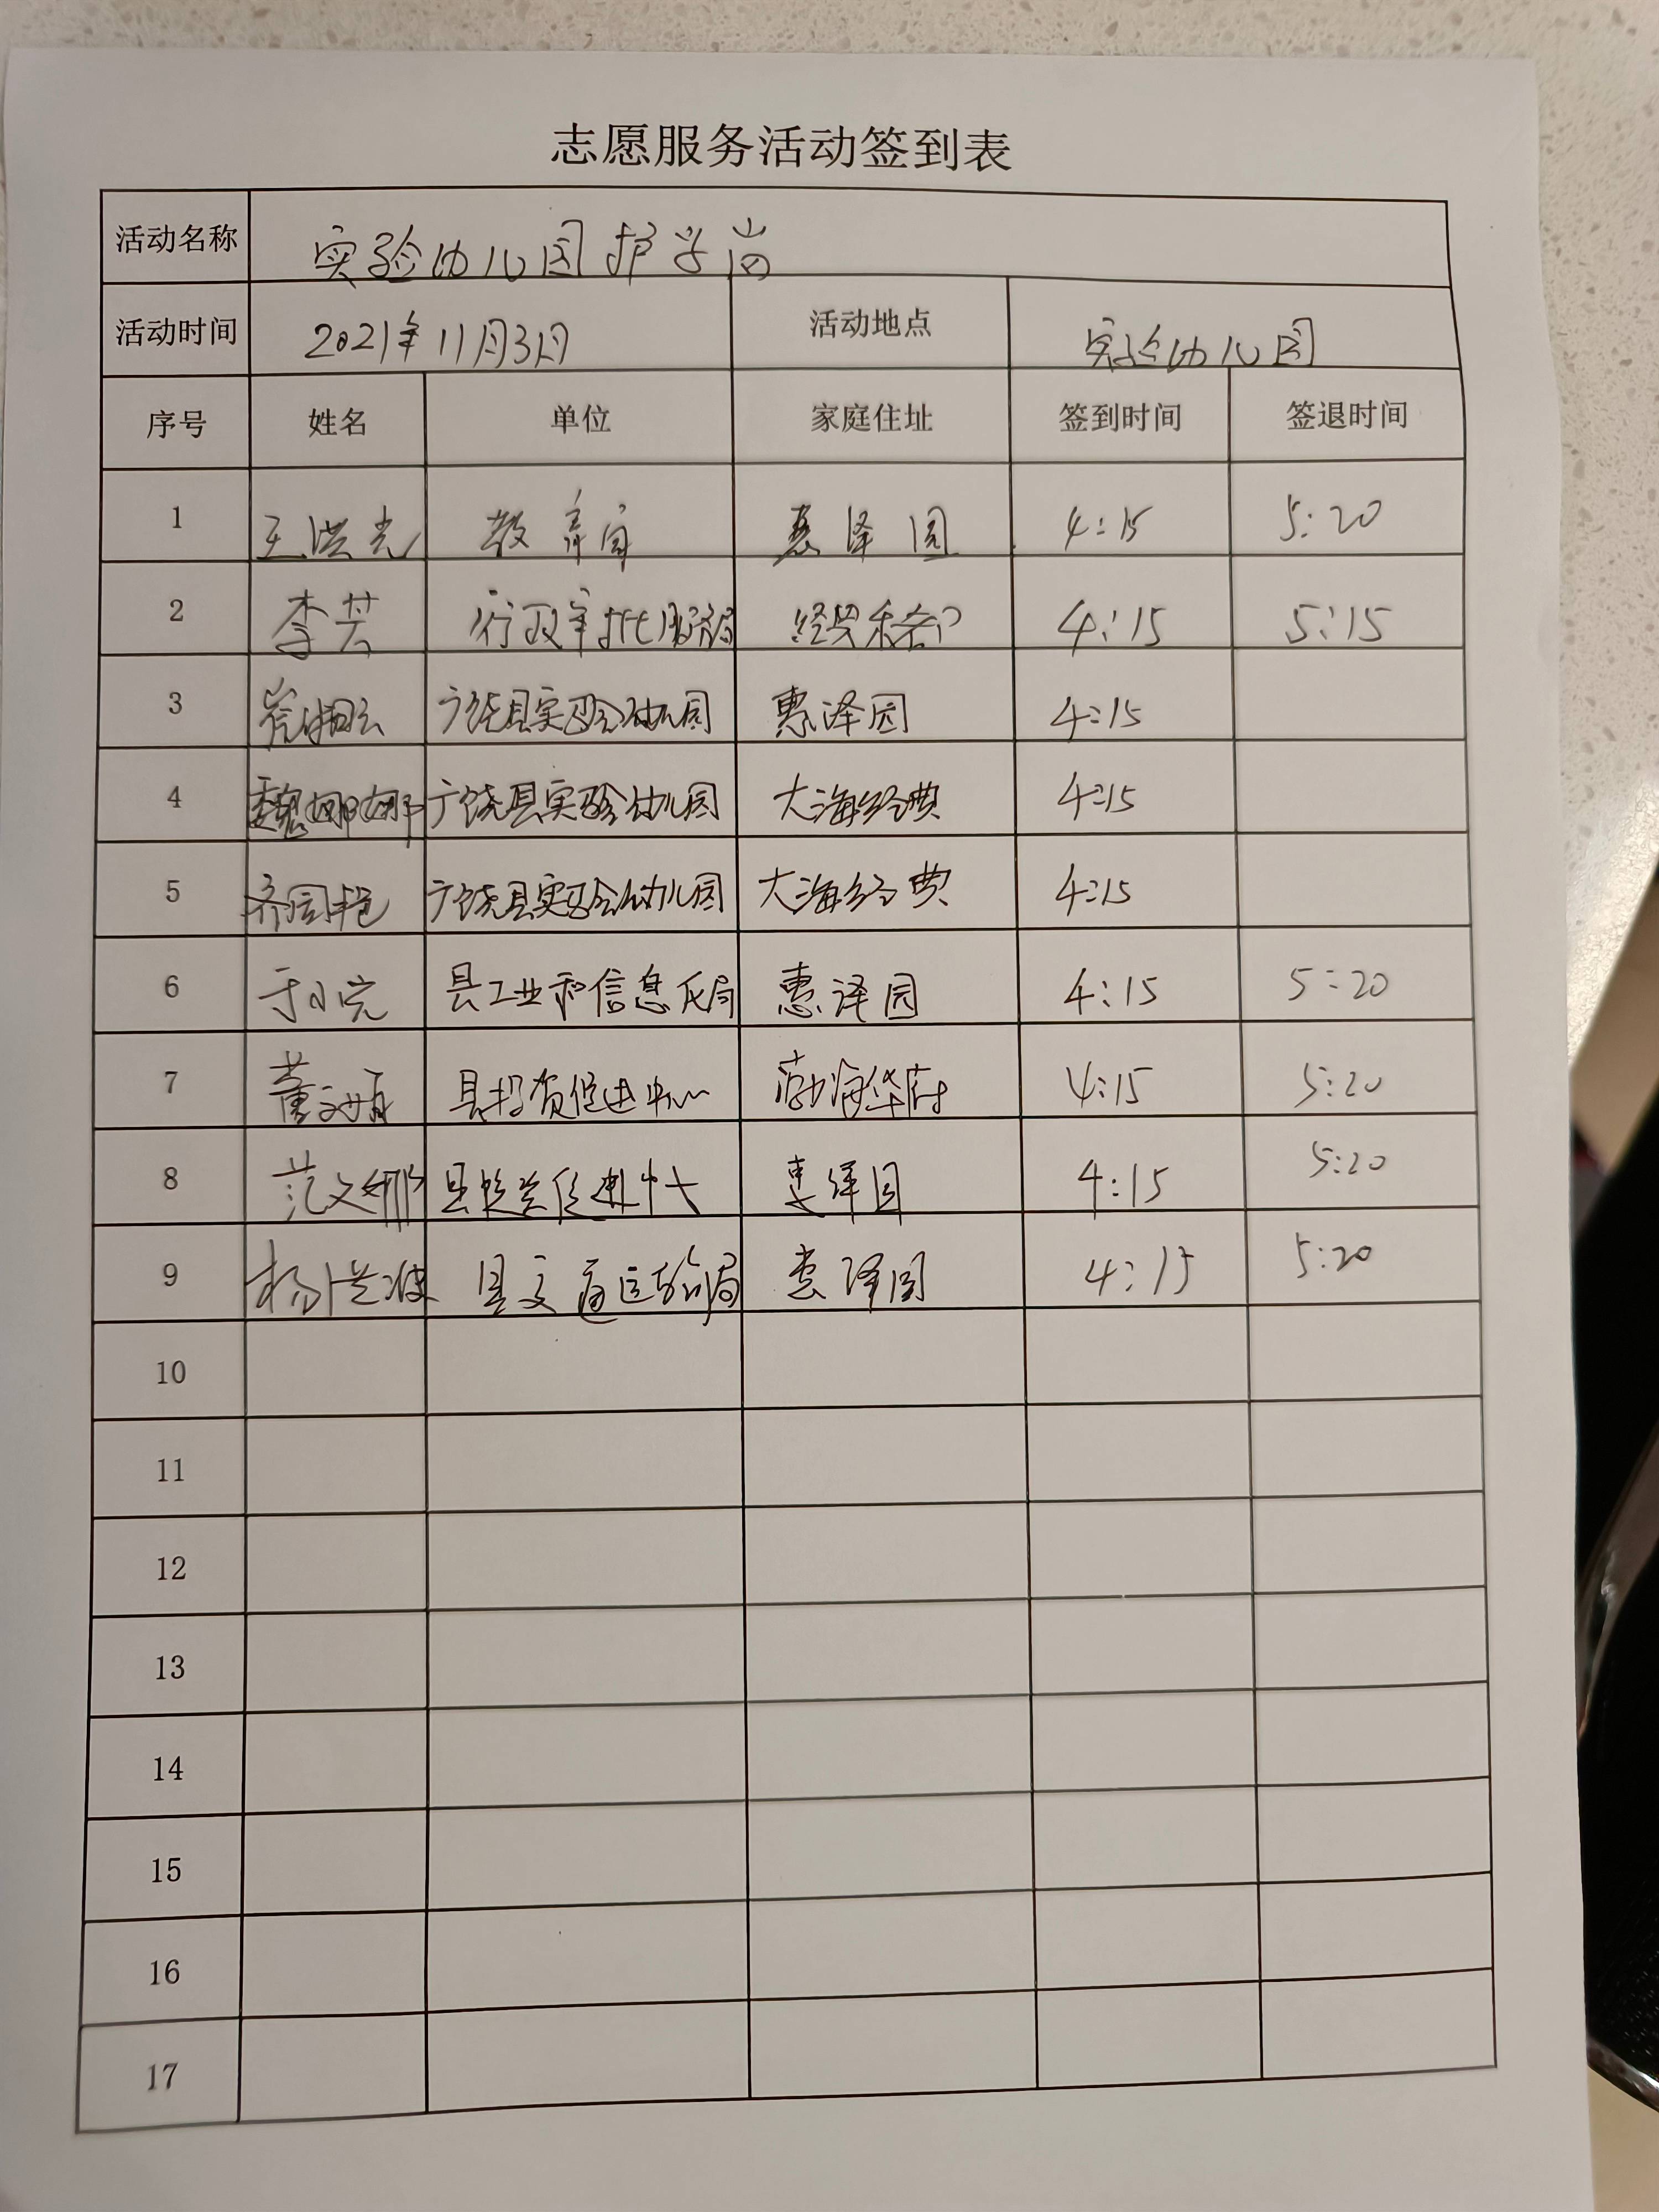 志愿服务活动签到表
活动名称 实验幼儿园护学岗
活动时间 2021年11月3日 活动地点 实验幼儿园
序号 姓名 单位 家庭住址 签到时间 签退时间
1 王洪光 教育局 惠泽园 4:15 5:20
2 李芸 行政审批服务局 4:15 5:15
3 广饶县实验幼儿园 惠泽园 4:15
4 魏娜娜 广饶县实验幼儿园 大海经典 4:15
5 齐园艳 广饶县实验幼儿园 大海经典 4:15
6 于小完 县工业和信息化局 惠泽园 4:15 5:20
7 董文娟 县投资促进中心 渤海华府 4:15 5:20
8 范文娜 县投资促进中心 惠泽园 4:15 5:20
9 杨洪波 县交通运输局 惠泽园 4:15 5:20
10
11
12
13
14
15
16
17